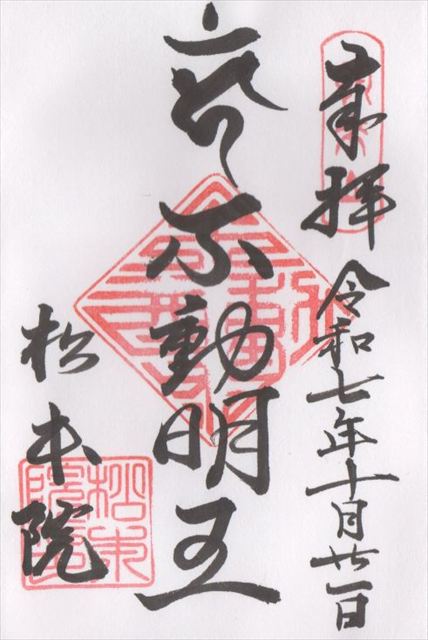 奉拝 令和七年十月廿一日
不動明王
松本院
松本院